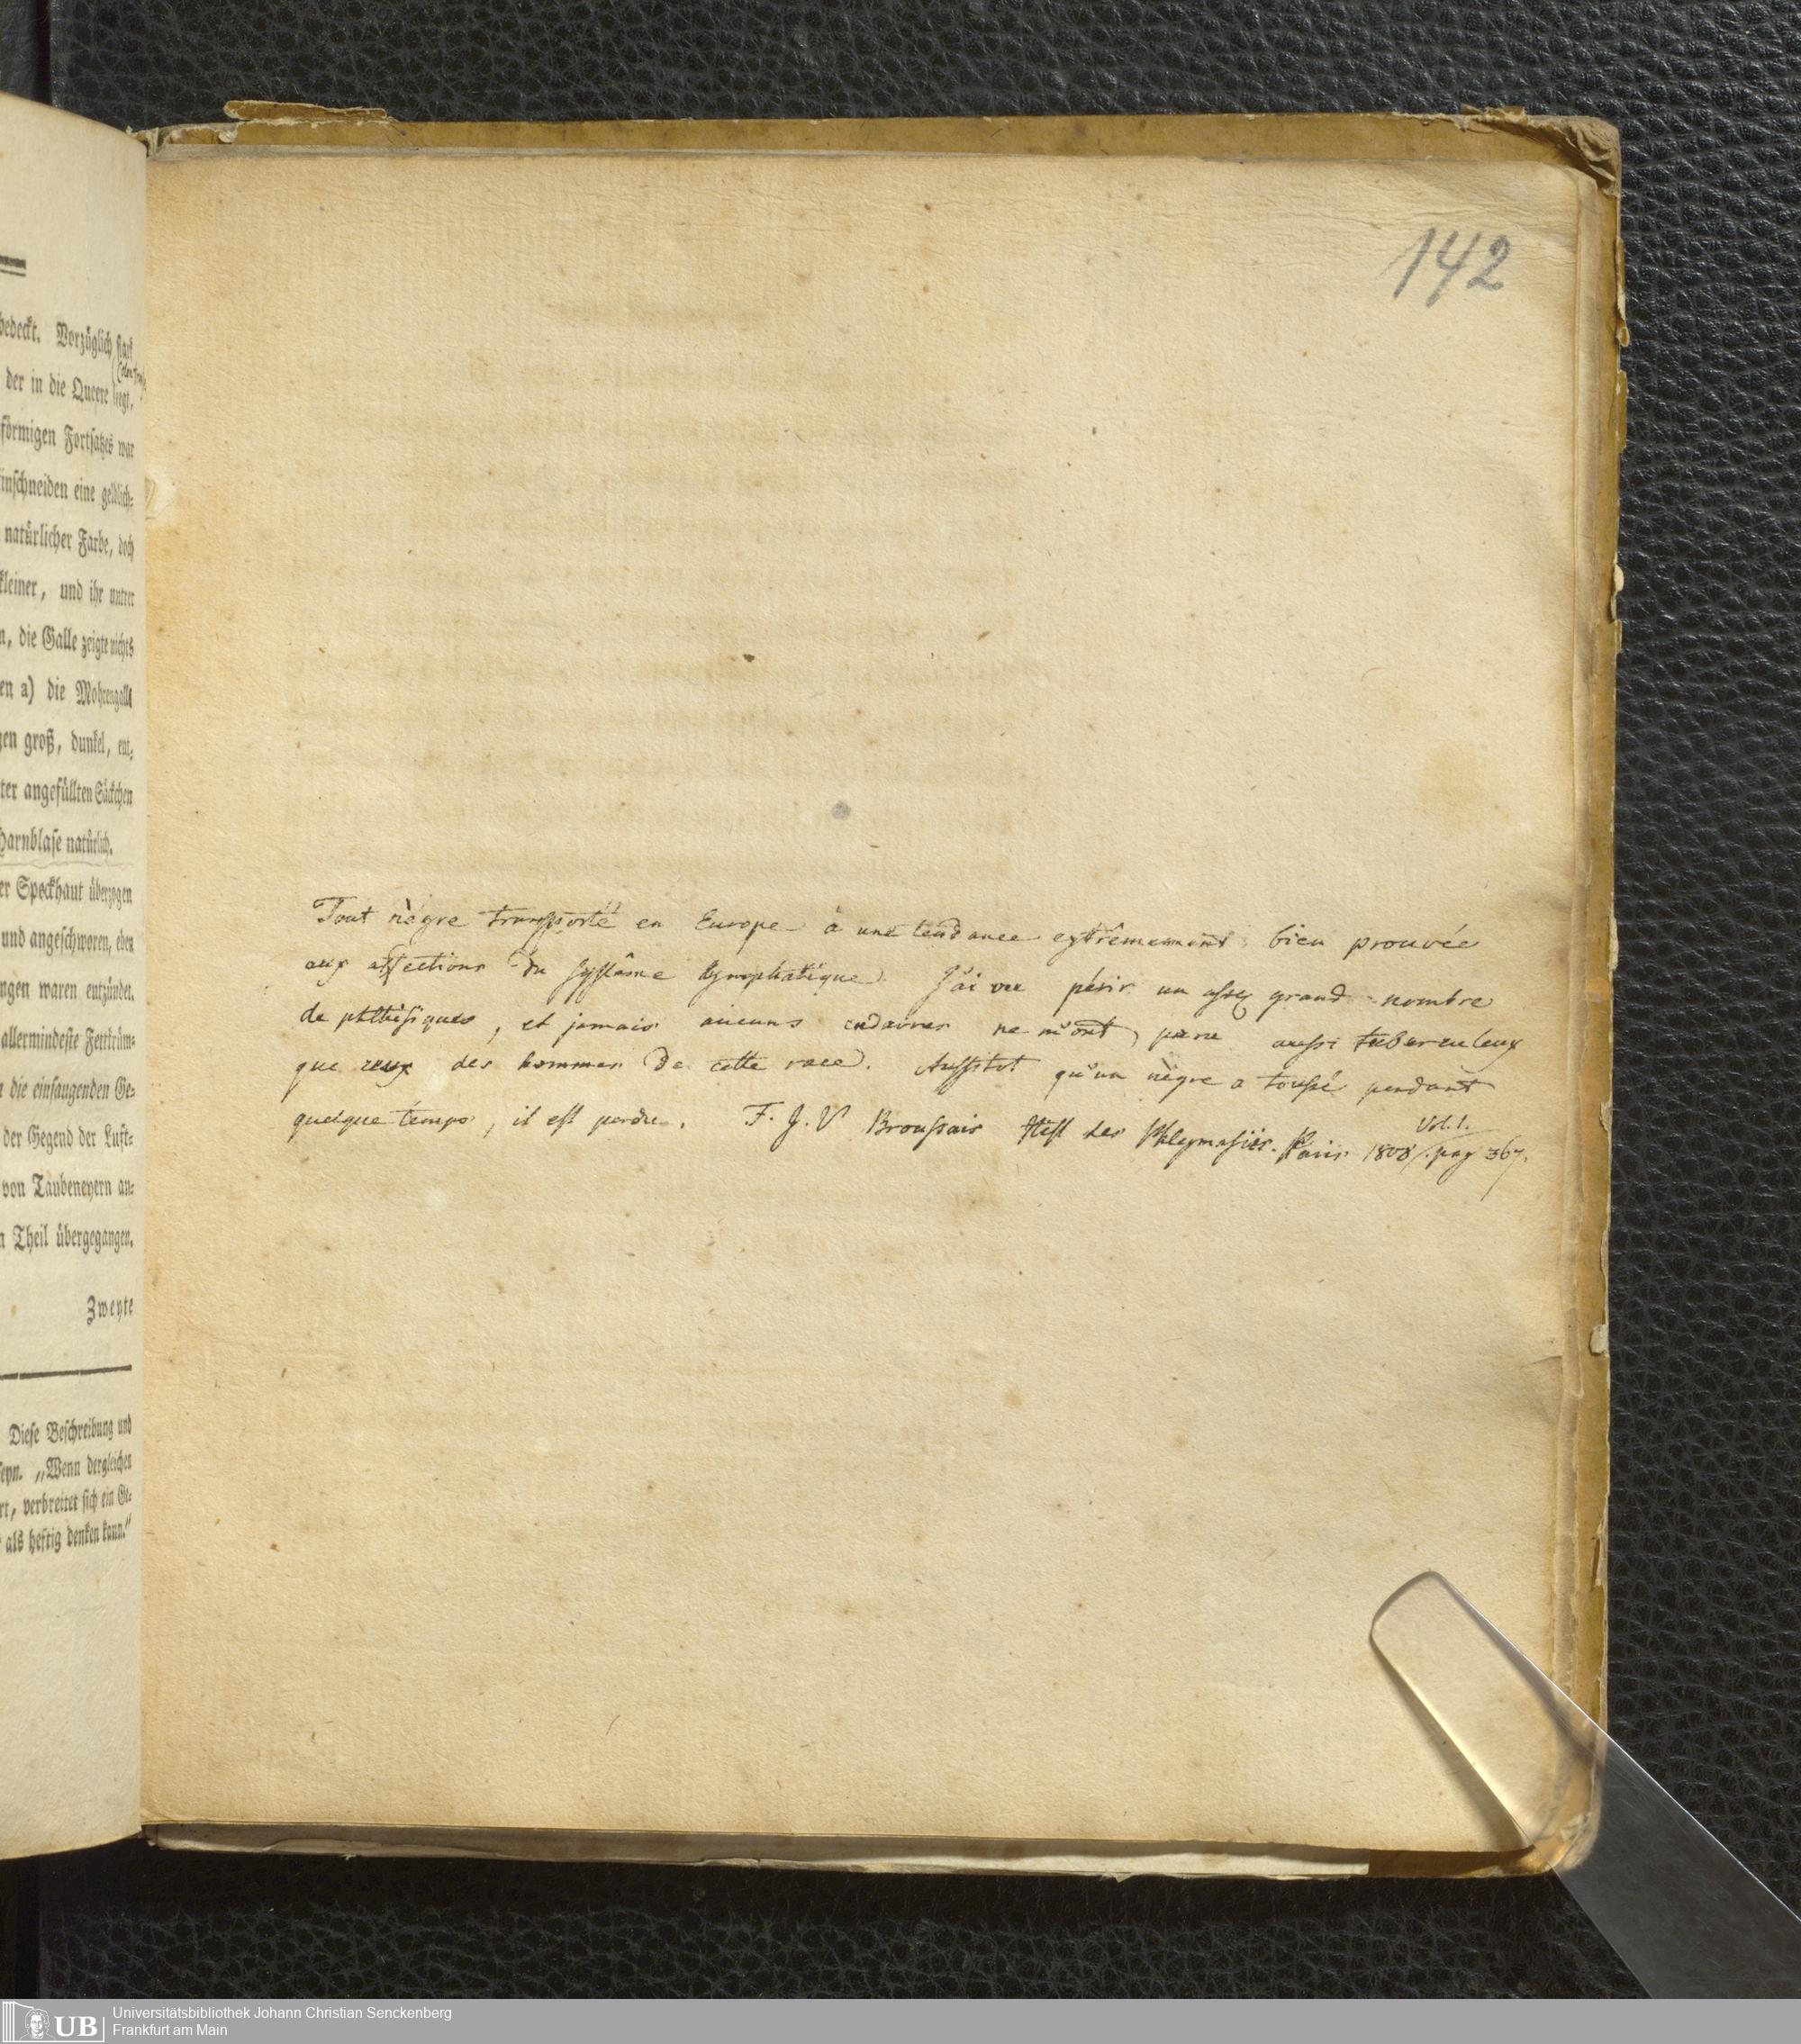 bedeckt. Vorzüglich stark
der in die Queere liegt,
förmigen Fortsatzes war
einschneiden eine gelblich-
natürlicher Farbe, doch
kleiner, und ihr untrer
n, die Galle zeigte nichts
en a) die Mohrengalle
gen groß, dunkel, ent-
ter angefüllten Säckchen
Harnblase natürlich.
er Speckhaut überzogen
und angeschworen, eben
ngen waren entzündet.
allermindeste Fettkrüm-
n die einsaugenden Ge-
der Gegend der Luft-
von Taubeneyern an-
n Theil übergegangen.
Zweyte
Diese Beschreibung und
seyn. „Wenn dergleichen
rt, verbreitet sich ein Ge-
als heftig denken kann.“
142
Tout nègre transporté en Europe a une tendance extrêmement bien prouvée
aux affections du système lymphatique. J'ai vu périr un assez grand nombre
de phthisiques, et jamais aucuns cadavres ne m'ont paru aussi tuberculeux
que ceux des hommes de cette race. Aussitot qu'un nègre a toussé pendant
quelque temps, il est perdu. F. J. V Broussais Hist des Phlegmasies. Paris 1808. Vol. 1. pag 367.
UB Universitätsbibliothek Johann Christian Senckenberg
Frankfurt am Main